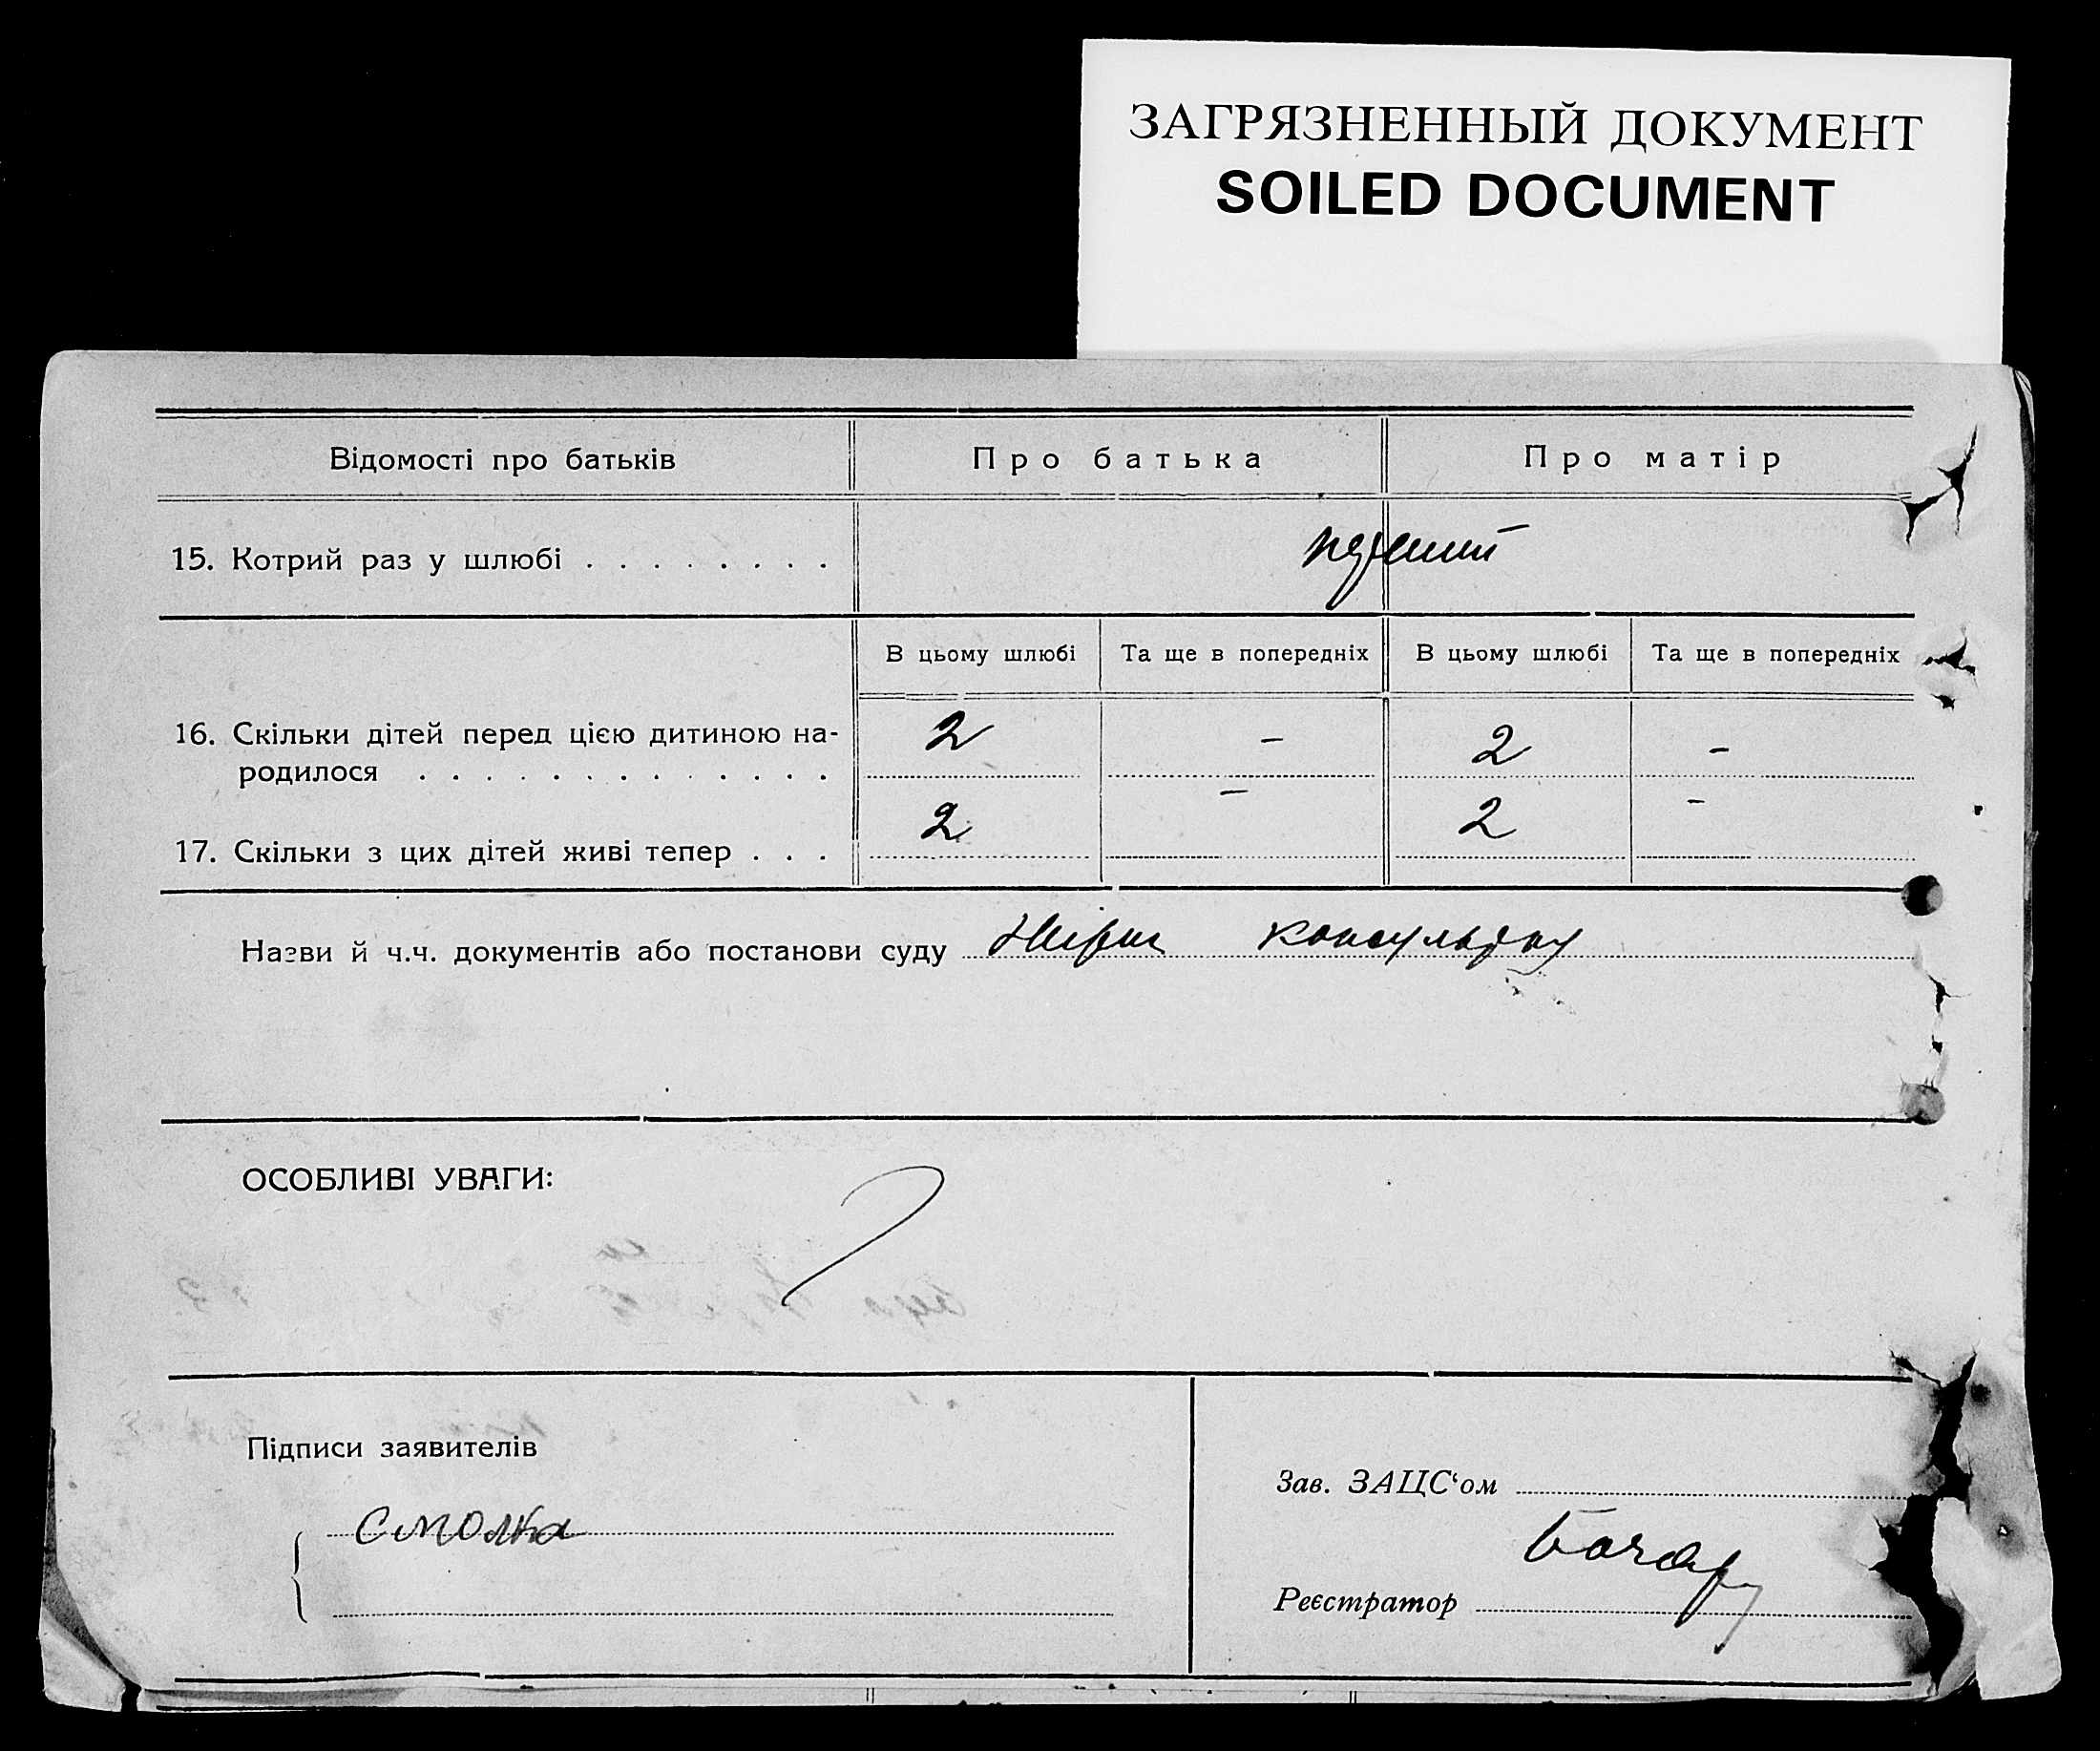 ЗАГРЯЗНЕННЫЙ ДОКУМЕНТ
SOILED DOCUMENT
Відомості про батьків Про батька Про матір
15. Котрий раз у шлюбі . . . . . . . . перший
В цьому шлюбі Та ще в попередніх В цьому шлюбі Та ще в попередніх
16. Скільки дітей перед цією дитиною на-
родилося . . . . . . . . . . . . . 2 – 2 –
17. Скільки з цих дітей живі тепер . . . 2 – 2 –
Назви й ч.ч. документів або постанови суду
ОСОБЛИВІ УВАГИ:
Підписи заявителів
Зав. ЗАЦС‘ом
Смолка
Реєстратор